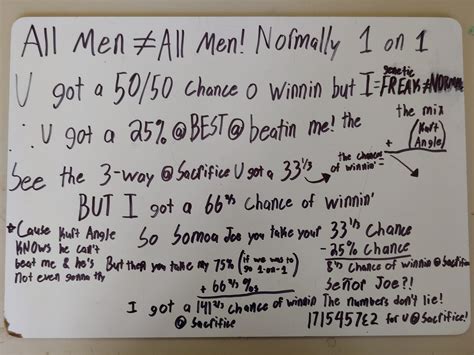 All Men ≠ All Men! Normally 1 on 1
U got a 50/50 Chance o Winnin but I = genetic FREAK ≠ NORMAL
∴ U got a 25% @ BEST @ beatin me! the the mix + Kurt Angle
See the 3-way @ Sacrifice U got a 33 1/3 the chance of winnin'
BUT I got a 66 2/3 Chance of Winnin'
*Cause Kurt Angle
KNOWS he can't
beat me & he's
not even gonna try
So Somoa Joe you take your 33 1/3 Chance
- 25% Chance
8 1/3 Chance of winnin @ Sacrifice
But then you take my 75% (if we was to go 1-on-1)
+ 66 2/3 %s
Señor Joe?!
I got a 141 2/3 chance of winnin @ Sacrifice
The numbers don't lie!
for U @ Sacrifice!